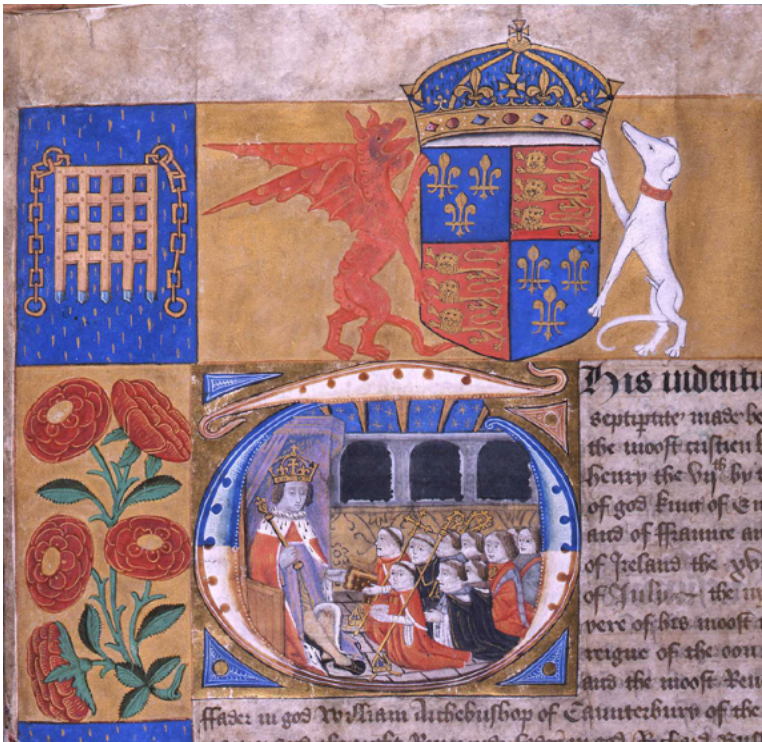 This indentu
septiptite made be
the moost cristien k
Henry the vijth by t
of god king of En
and of ffraunce an
of Ireland the xvi
of July the in
yere of his moost
reigne of the oon
and the moost Reue
ffader in god William Archebusshop of Caunterbury of the